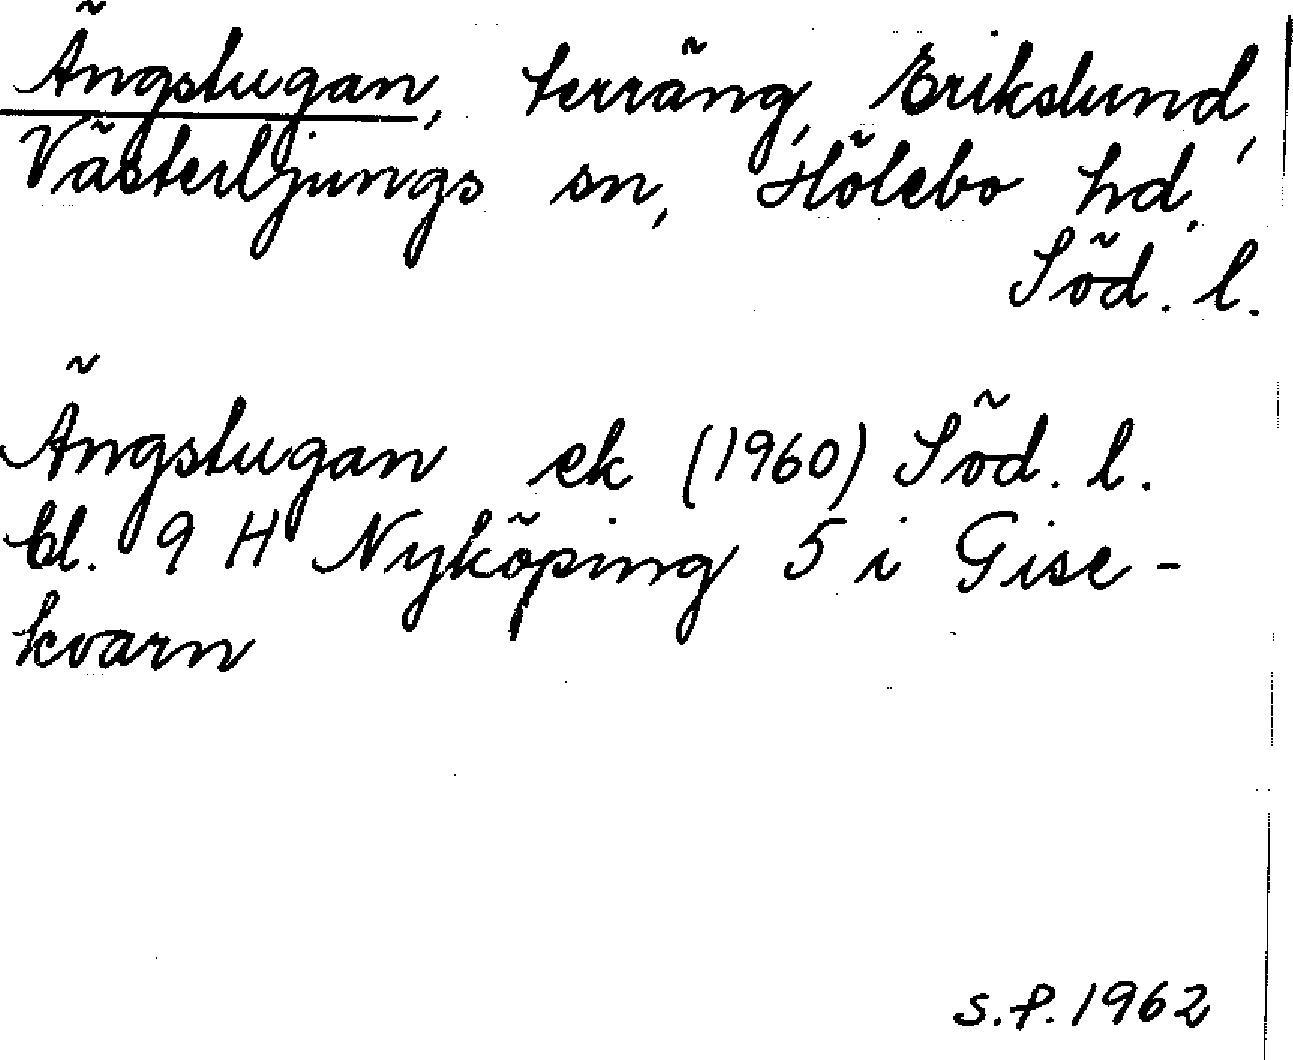 Ängstugan, terräng, Erikslund,
Västerljungs sn, Hölebo hd.
Söd. l.
Ängstugan ek (1960) Söd. l.
bl. 9 H Nyköping 5 i Gise-
kvarn
S.P. 1962